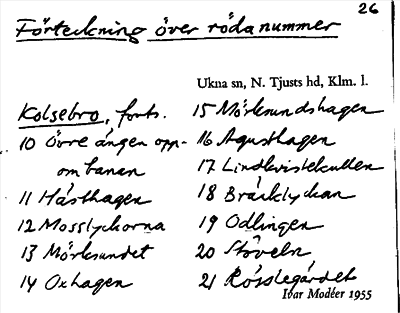 26
Förteckning över röda nummer
Ukna sn, N. Tjusts hd, Klm. l.
Kolsebro, forts.
10 Övre ängen opp-
om banan
11 Hästhagen
12 Mosslyckorna
13 Mörksundet
14 Oxhagen
15 Mörksundshagen
16 Agusthagen
17 Lindkvistekullen
18 Bråcklyckan
19 Odlingen
20 Stöveln
21 Rösslegärdet
Ivar Modéer 1955